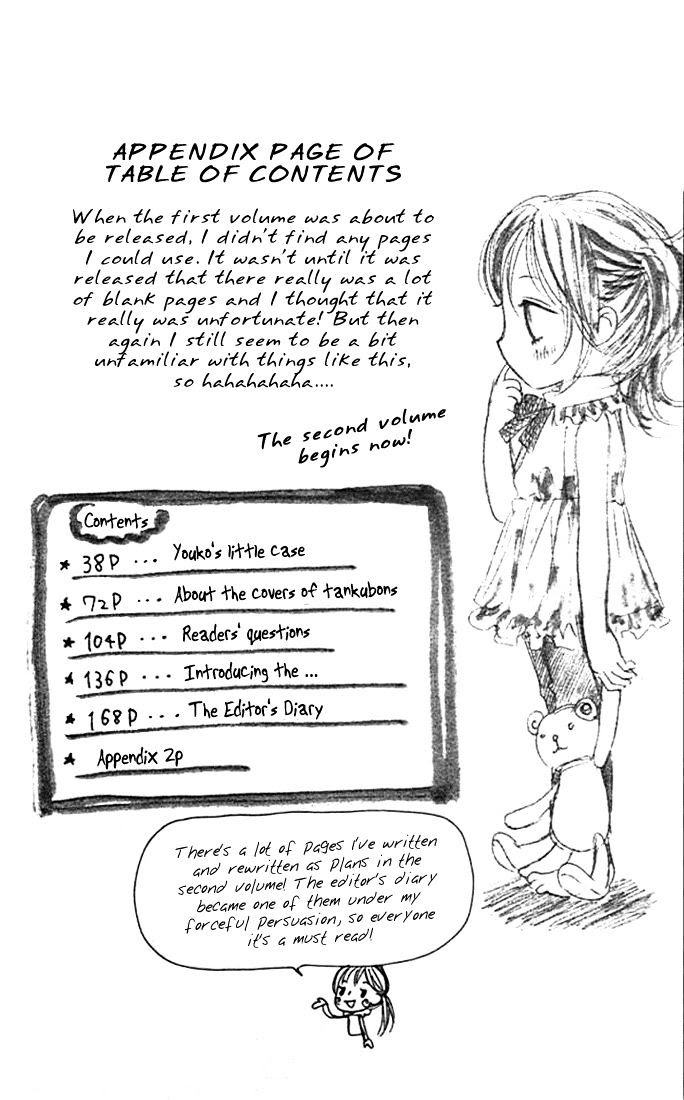 APPENDIX PAGE OF
TABLE OF CONTENTS
When the first volume was about to
be released, I didn't find any pages
I could use. It wasn't until it was
released that there really was a lot
of blank pages and I thought that it
really was unfortunate! But then
again I still seem to be a bit
unfamiliar with things like this,
so hahahahaha....
The second volume
begins now!
Contents
★ 38P ... Youko's little case
★ 72P ... About the covers of tankubons
★ 104P ... Readers' questions
★ 136P ... Introducing the ...
★ 168P ... The Editor's Diary
★ Appendix 2p
There's a lot of pages I've written
and rewritten as plans in the
second volume! The editor's diary
became one of them under my
forceful persuasion, so everyone
it's a must read!